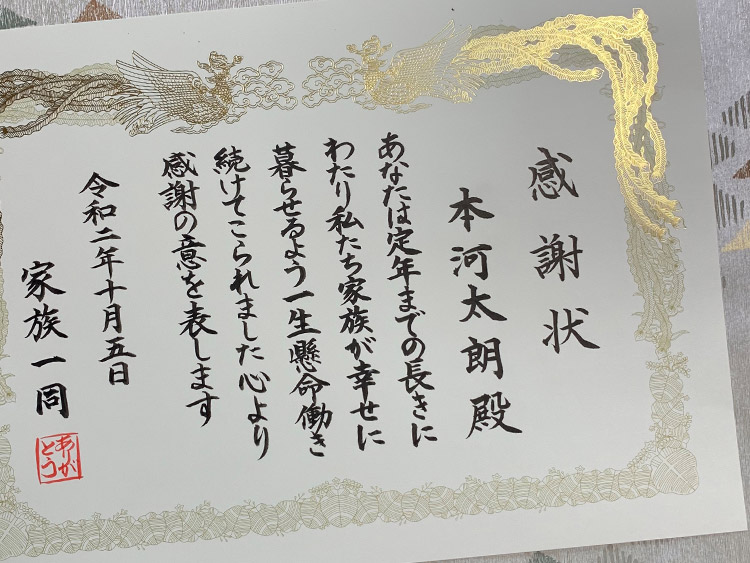 感謝状
本河太朗殿
あなたは定年までの長きに
わたり私たち家族が幸せに
暮らせるよう一生懸命働き
続けてこられました心より
感謝の意を表します
令和二年十月五日
家族一同
ありが
とう